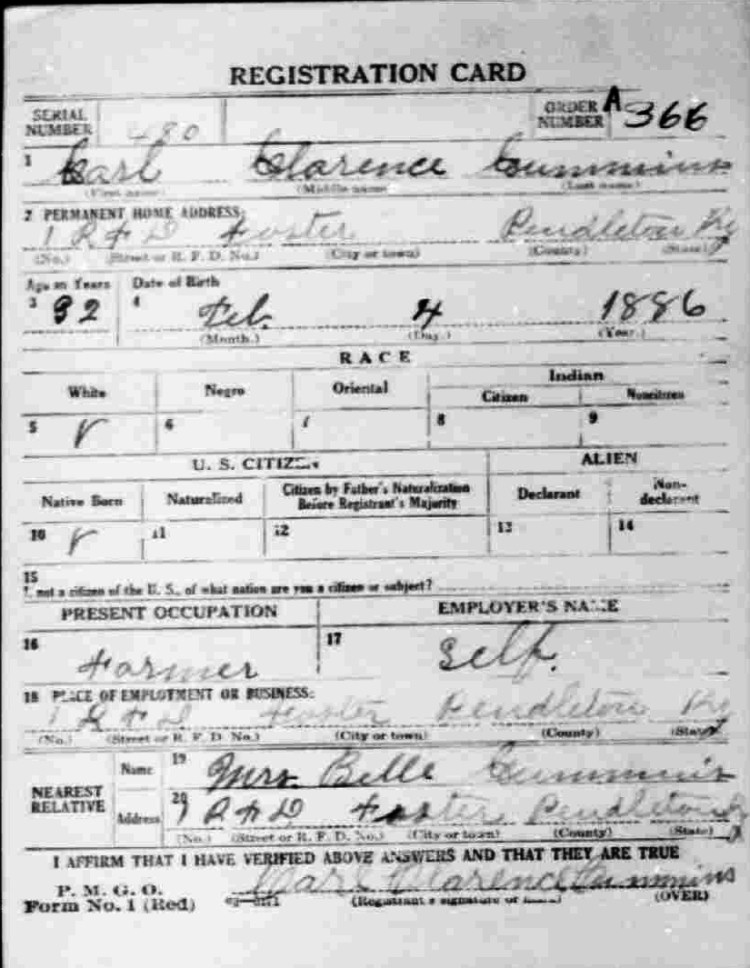 REGISTRATION CARD
SERIAL NUMBER 480 ORDER NUMBER A 366
1 Carl Clarence Cummins
(First name) (Middle name) (Last name)
2 PERMANENT HOME ADDRESS:
1 R F D Foster Pendleton Ky
(No.) (Street or R. F. D. No.) (City or town) (County) (State)
Age in Years Date of Birth
3 32 4 Feb. 4 1886
(Month.) (Day.) (Year.)
RACE
White Negro Oriental Indian
Citizen Noncitizen
5 6 7 8 9
U. S. CITIZEN ALIEN
Native Born Naturalized Citizen by Father's Naturalization Before Registrant's Majority Declarant Non-declarant
10 11 12 13 14
15
not a citizen of the U. S., of what nation are you a citizen or subject?
PRESENT OCCUPATION EMPLOYER'S NAME
16 Farmer 17 Self.
18 PLACE OF EMPLOYMENT OR BUSINESS:
1 R F D Foster Pendleton Ky
(No.) (Street or R. F. D. No.) (City or town) (County) (State)
NEAREST RELATIVE Name 19 Mrs. Belle Cummins
Address 20 1 R F D Foster Pendleton Ky
(No.) (Street or R. F. D. No.) (City or town) (County) (State)
I AFFIRM THAT I HAVE VERIFIED ABOVE ANSWERS AND THAT THEY ARE TRUE
P. M. G. O.
Form No. 1 (Red) Carl Clarence Cummins
(Registrant's signature or) (OVER)